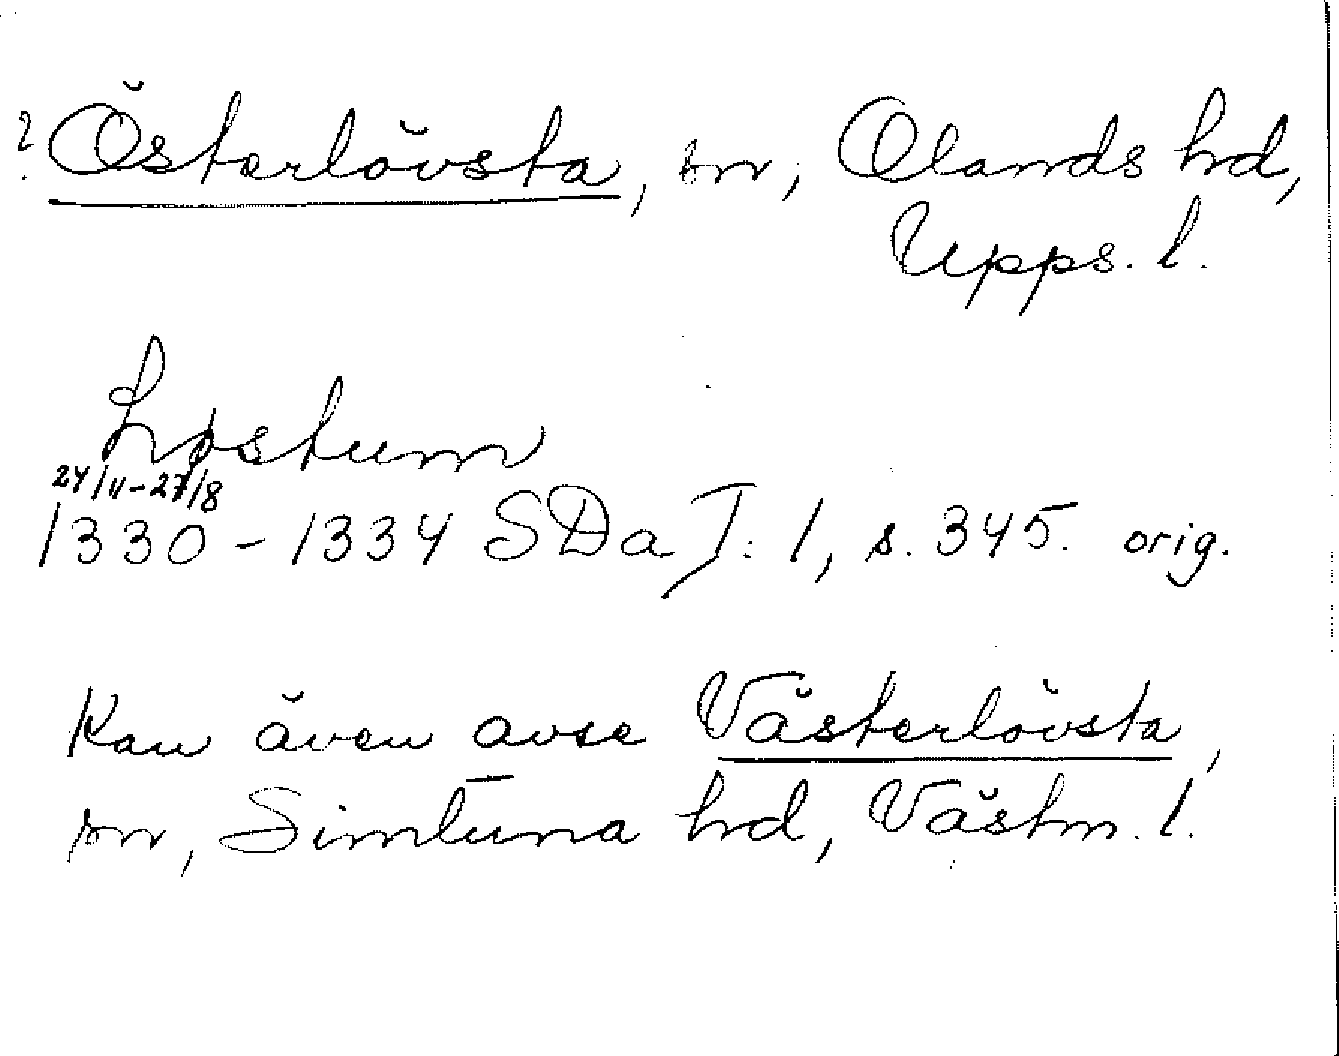 ? Österlövsta, sn, Olands hd,
Upps. l.
Løstum
24/11-27/8
1330-1334 SDa I: 1, s. 345. orig.
Kan även avse Västerlövsta,
sn, Simtuna hd, Västm. l.